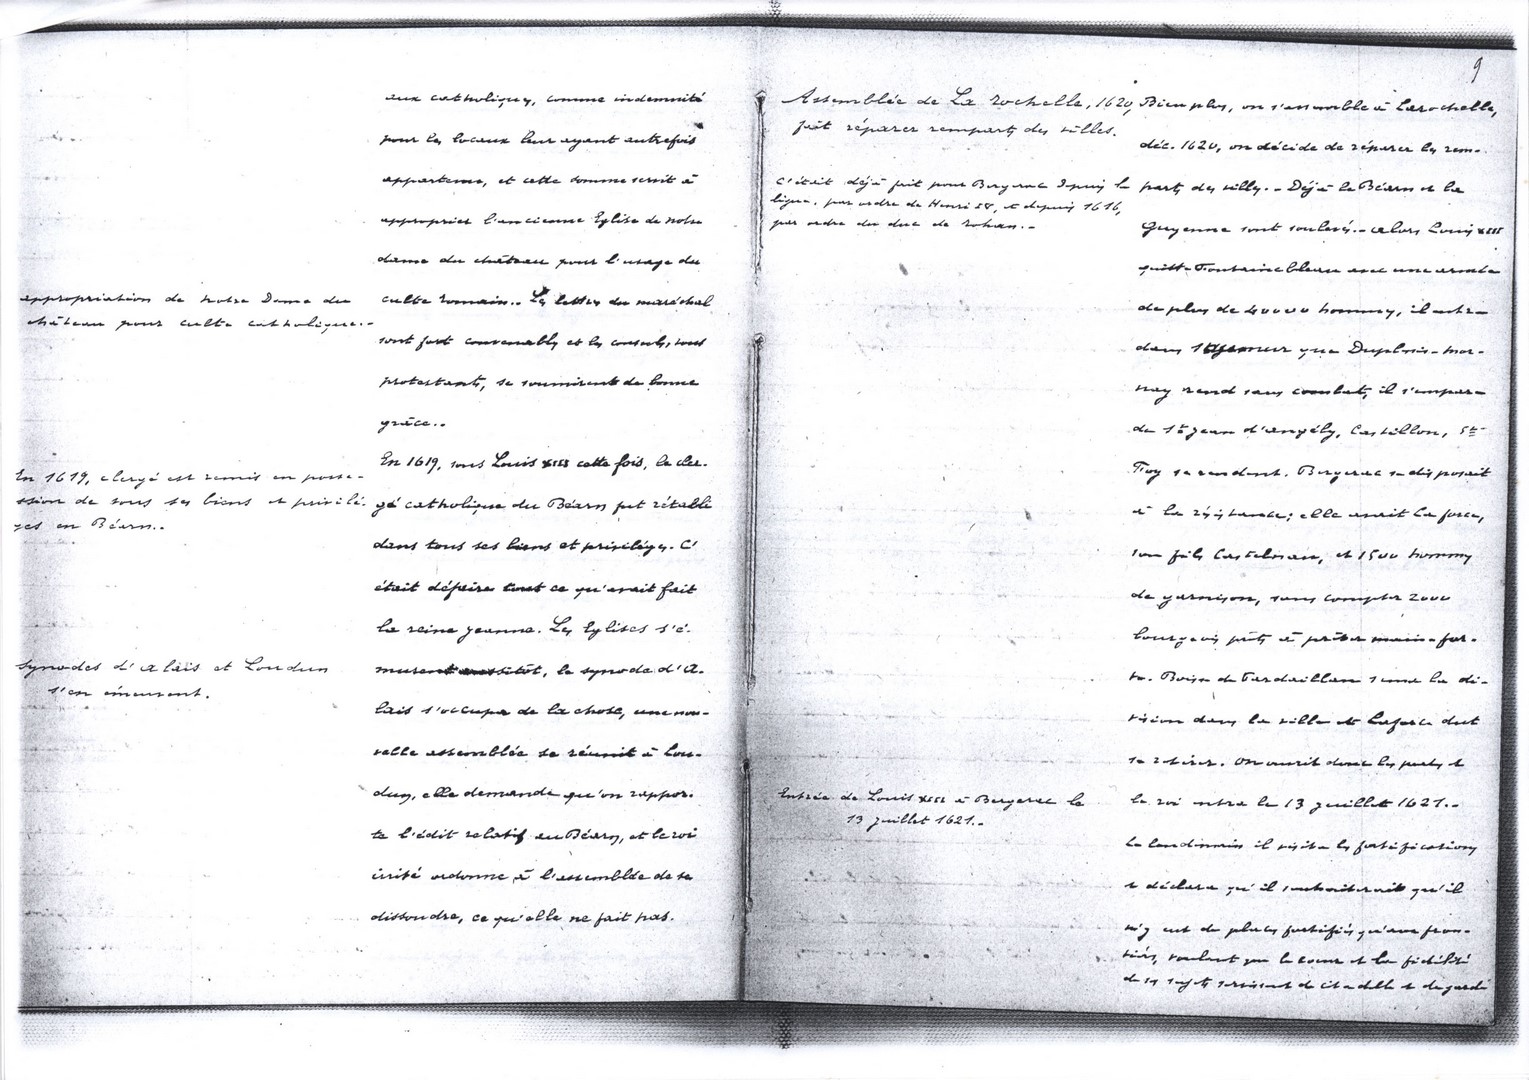 aux catholiques, comme indemnité
pour les locaux leur ayant autrefois
appartenu, et cette somme servit à
approprier l'ancienne Eglise de notre
dame du château pour l'usage du
culte romain.. Les lettres du maréchal
sont fort convenables et les consuls, tous
protestants, se soumirent de bonne
grâce..
appropriation de Notre Dame du
château pour culte catholique.-
En 1619, sous Louis XIII cette fois, le cler-
gé catholique du Béarn fut rétabli
dans tous ses biens et privilèges. C'
était défaire tout ce qu'avait fait
la reine Jeanne. Les Eglises s'é-
murent aussitôt, le synode d'A-
lais s'occupa de la chose, une nou-
velle assemblée se réunit à Lou-
dun, elle demande qu'on rappor-
te l'édit relatif au Béarn, et le roi
irrité ordonne à l'assemblée de se
dissoudre, ce qu'elle ne fait pas.
En 1619, clergé est remis en posse-
ssion de tous ses biens et privilè-
ges en Béarn..
Synodes d'Alais et Loudun
s'en émeuvent.
9
Assemblée de La Rochelle, 1620,
fait réparer remparts des villes.
C'était déjà fait pour Bergerac depuis la
ligue, par ordre de Henri IV, et depuis 1616,
par ordre du duc de Rohan.-
Bien plus, on s'assemble à Larochelle,
déc. 1620, on décide de réparer les rem-
parts des villes.- Déjà le Béarn et la
Guyenne sont soulevés.- alors Louis XIII
quitte Fontainebleau avec une armée
de plus de 40000 hommes, il entre
dans Saumur que Duplessis-Mor-
nay rend sans combat, il s'empare
de St Jean d'Angély, Castillon, Ste
Foy se rendent. Bergerac se disposait
à la résistance; elle avait La force,
son fils Castelnau, et 1500 hommes
de garnison, sans compter 2000
bourgeois prêts à prêter main-for-
te. Boisse de Pardaillan sema la di-
vision dans la ville et Laforce dut
se retirer. On ouvrit donc les portes et
le roi entra le 13 juillet 1621.-
Le lendemain il visita les fortifications
et déclara qu'il souhaiterait qu'il
n'y eut de places fortifiées qu'aux fron-
tières, voulant que le coeur et la fidélité
de ses sujets servissent de citadelle et de garde
Entrée de Louis XIII à Bergerac le
13 juillet 1621.-